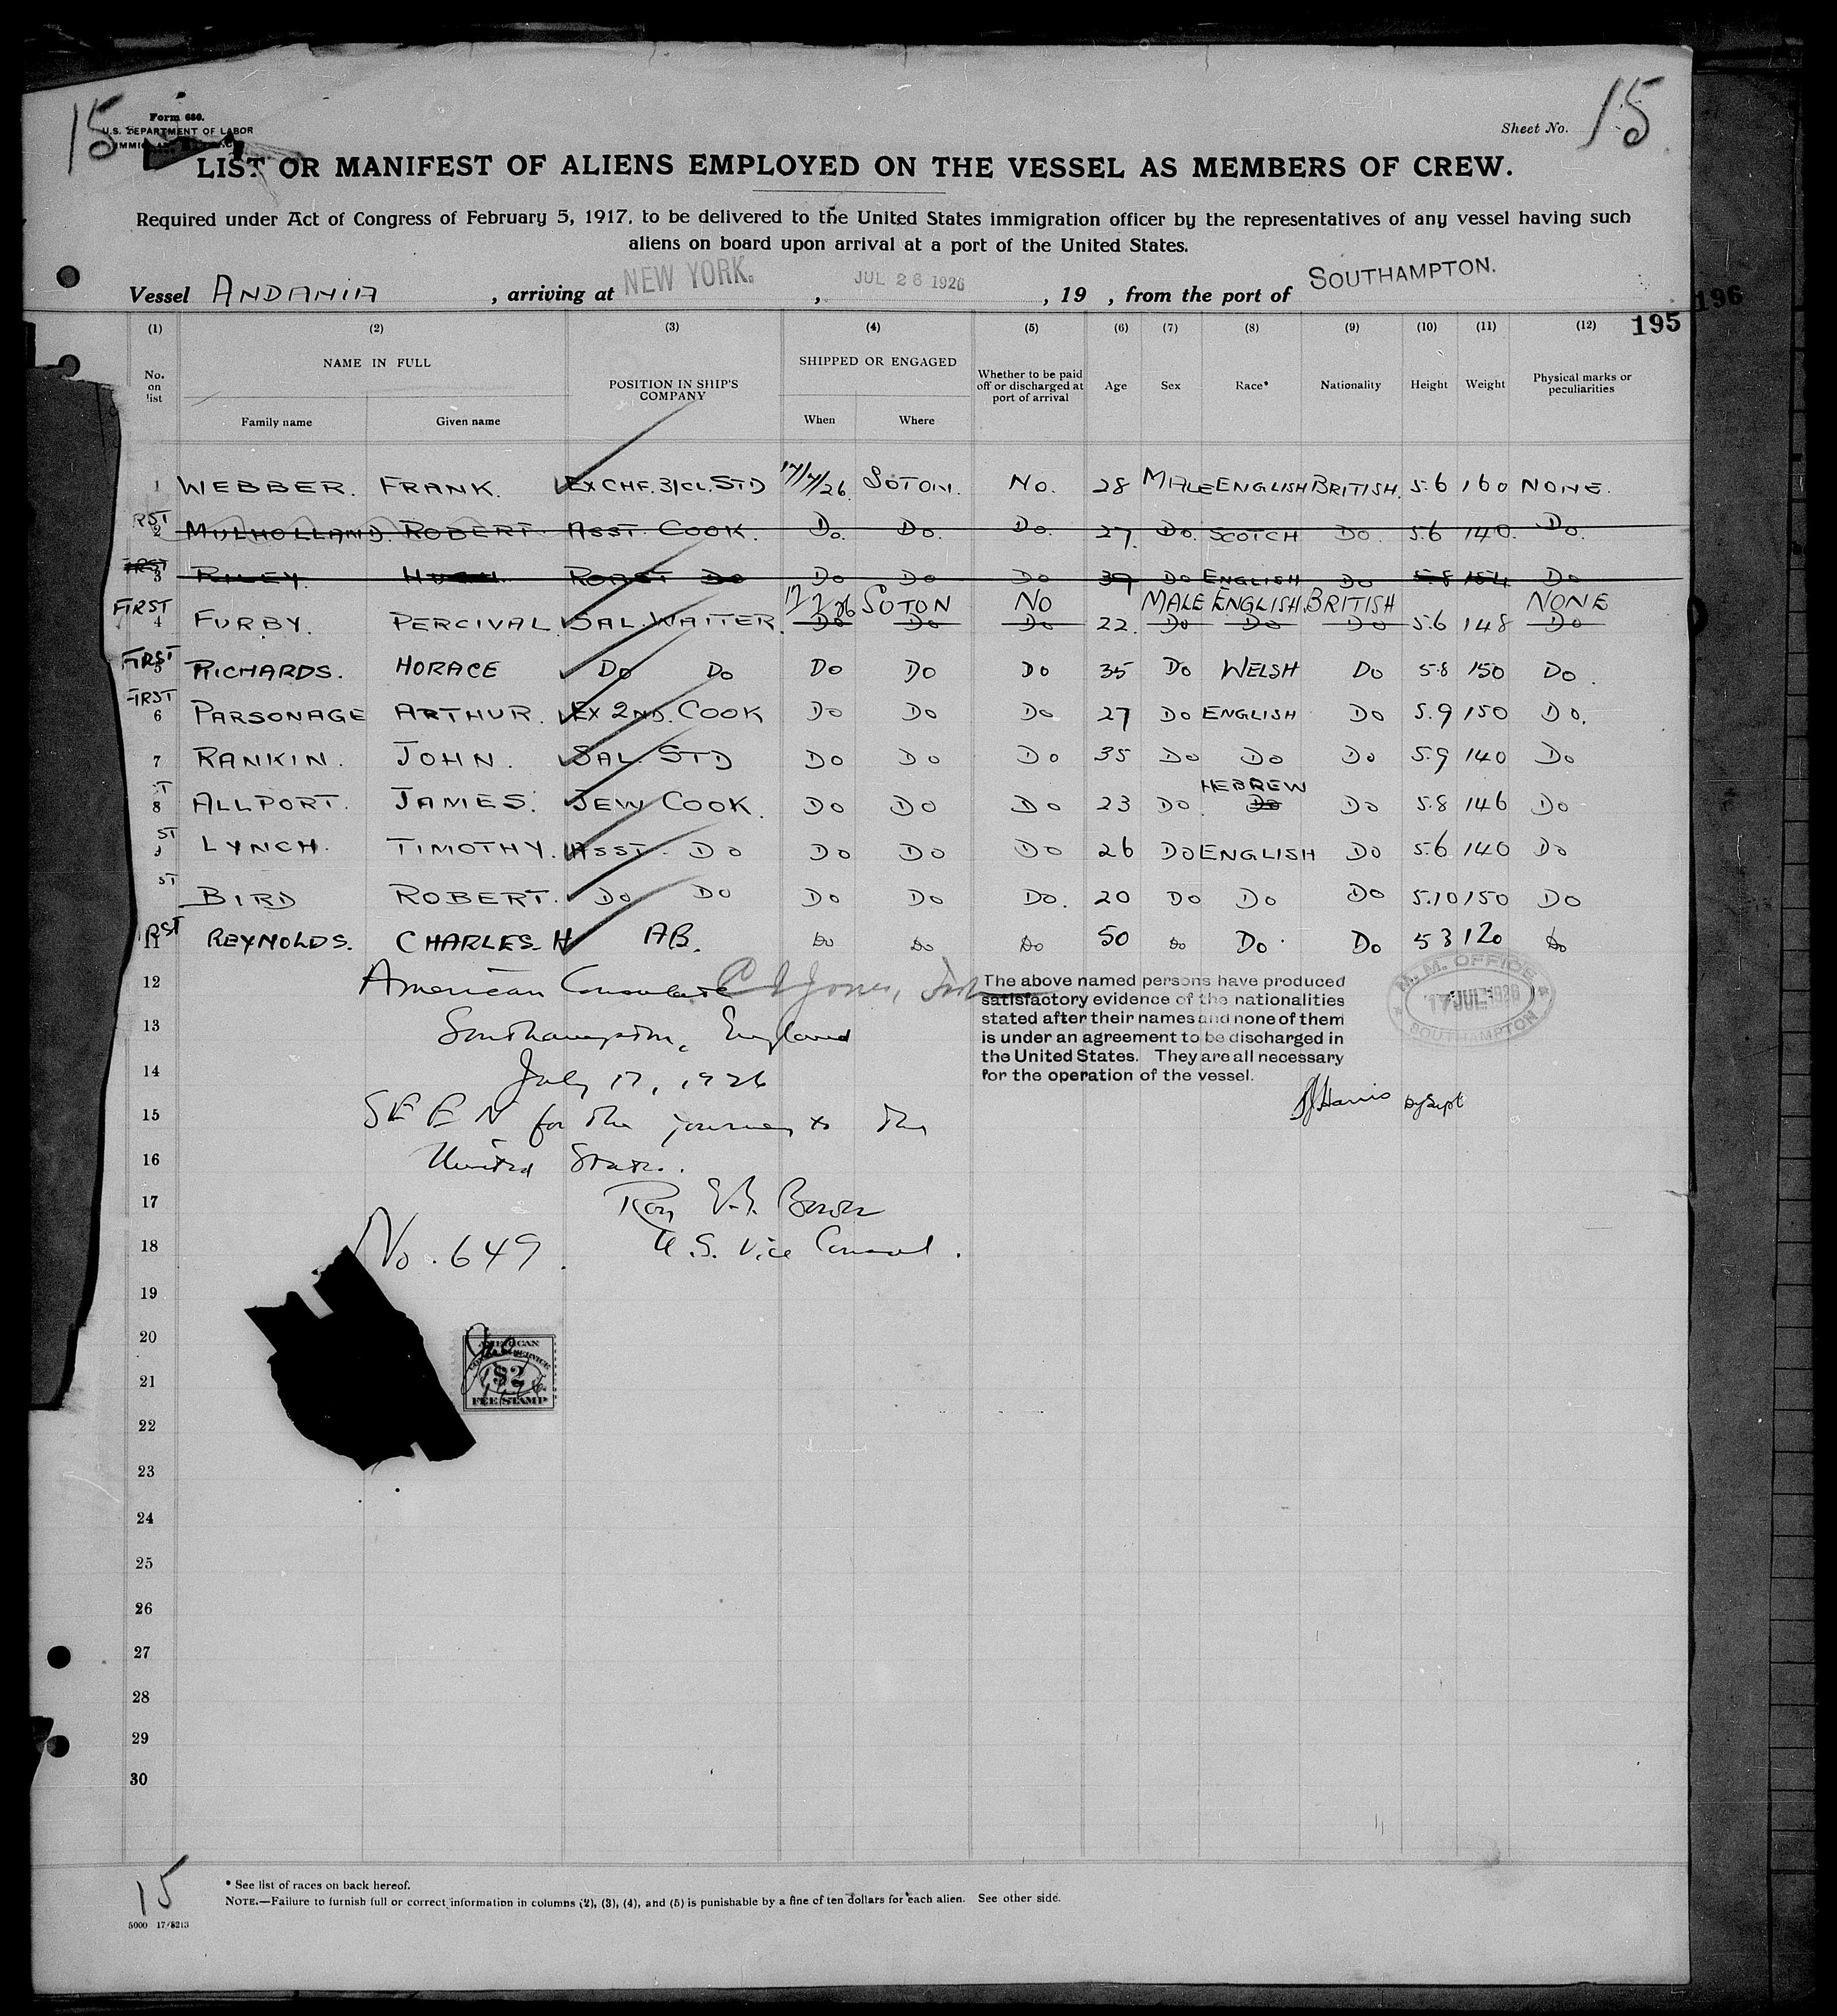 15
Form 680.
U.S. DEPARTMENT OF LABOR
Sheet No. 15
LIST OR MANIFEST OF ALIENS EMPLOYED ON THE VESSEL AS MEMBERS OF CREW.
Required under Act of Congress of February 5, 1917, to be delivered to the United States immigration officer by the representatives of any vessel having such
aliens on board upon arrival at a port of the United States.
Vessel ANDANIA, arriving at NEW YORK, JUL 26 1926, 19 , from the port of SOUTHAMPTON.
196
195
(1) (2) (3) (4) (5) (6) (7) (8) (9) (10) (11) (12)
No. on list NAME IN FULL POSITION IN SHIP'S COMPANY SHIPPED OR ENGAGED Whether to be paid off or discharged at port of arrival Age Sex Race* Nationality Height Weight Physical marks or peculiarities
Family name Given name When Where
1 WEBBER. FRANK. EX CHF. 3/CL. STD 17/7/26. SOTON. NO. 28 MALE ENGLISH BRITISH. 5.6 160 NONE.
RST
2 MULHOLLAND. ROBERT. ASST. COOK. DO. DO. DO. 27. DO. SCOTCH DO. 5.6 140. DO.
3 RILEY. HUGH. ROAST DO DO DO DO 39 DO ENGLISH DO 5.8 154 DO
FIRST 17 7 26 SOTON NO MALE ENGLISH BRITISH NONE
4 FURBY. PERCIVAL. SAL. WAITER. DO DO DO 22. DO DO DO 5.6 148 DO
FIRST
5 RICHARDS. HORACE DO DO DO DO DO 35 DO WELSH DO 5.8 150 DO.
FIRST
6 PARSONAGE ARTHUR. EX 2ND. COOK DO DO DO 27 DO ENGLISH DO 5.9 150 DO.
7 RANKIN. JOHN. SAL. STD DO DO DO 35 DO DO DO 5.9 140 DO
ST HEBREW
8 ALLPORT. JAMES. JEW COOK. DO DO DO 23 DO. DO DO 5.8 146 DO
ST
LYNCH. TIMOTHY. ASST. DO DO DO DO 26 DO ENGLISH DO 5.6 140 DO
ST
BIRD ROBERT. DO DO DO DO DO. 20 DO DO DO 5.10 150 DO
RST
11 REYNOLDS. CHARLES. H AB. DO DO DO 50 DO DO. DO 5 3 120 DO
12 American Consulate
The above named persons have produced
satisfactory evidence of the nationalities
stated after their names and none of them
is under an agreement to be discharged in
the United States. They are all necessary
for the operation of the vessel.
M.M. OFFICE
17 JUL 1926
SOUTHAMPTON
13 Southampton, England
14 July 17, 1926
Harris Dy Supt
15 SEEN for the journey to the
16 United States.
17 Roy E. B. Bower
18 No. 649. U.S. Vice Consul.
19
20
AMERICAN
CONSULAR SERVICE
$2
FEE STAMP
21
22
23
24
25
26
27
28
29
30
15
* See list of races on back hereof.
NOTE.—Failure to furnish full or correct information in columns (2), (3), (4), and (5) is punishable by a fine of ten dollars for each alien. See other side.
5000 17/5213